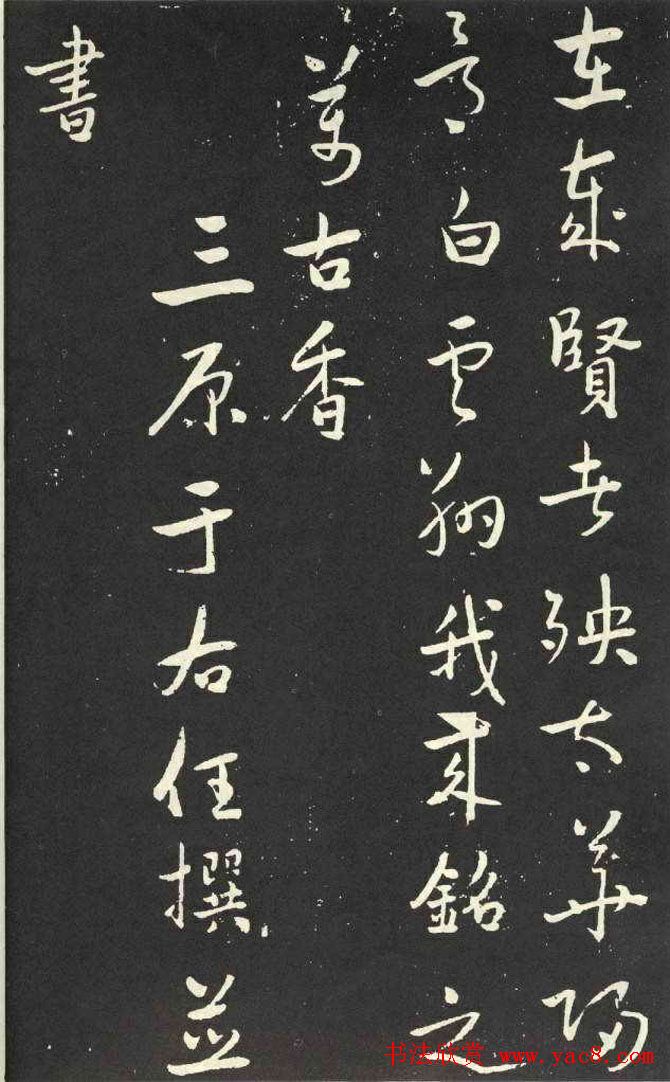 在歲賢者殃太華歸
兮白雲翔我來銘之
萬古香
三原于右任撰並
書
书法欣赏 www.yac8.com